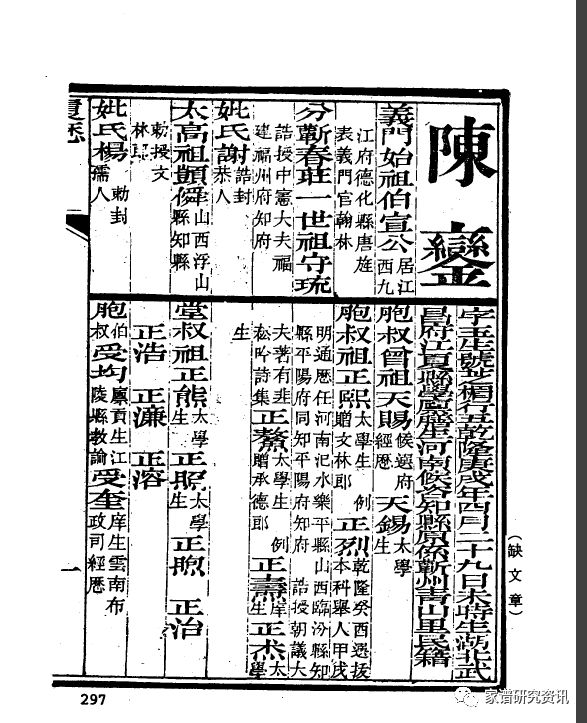 陳鑾
字玉生號芝楣行五乾隆庚戌年四月二十九日未時生湖北武
昌府江夏縣學廩膳生河南候知縣原係蘄州青山里民籍
義門始祖伯宣公居江西九
江府德化縣唐旌
表義門官翰林
分蘄春莊一世祖守琉
誥授中憲大夫福
建福州府知府
妣氏謝誥封恭人
太高祖山西浮山縣知縣
勅授文
林郎
妣氏楊勅封孺人
履歷
胞叔曾祖天賜候選府經歷 天錫太學生
胞叔祖正熙太學生 例贈文林郎 正烈乾隆癸酉選拔本科舉人甲戌
明通歷任河南汜水樂平縣山西臨汾縣知
縣平陽府同知平陽府知府 誥授朝議大
夫著有韭菘吟詩集 正鰲太學生 例贈承德郎 正壽庠生 正杰太學
生
堂叔祖正熊太學生 正照太學生 正煦 正治
正浩 正濂 正溶
胞伯叔受均廩貢生江陵縣教諭 受奎庠生雲南布政司經歷
一
(缺文章)
297
家谱研究资讯